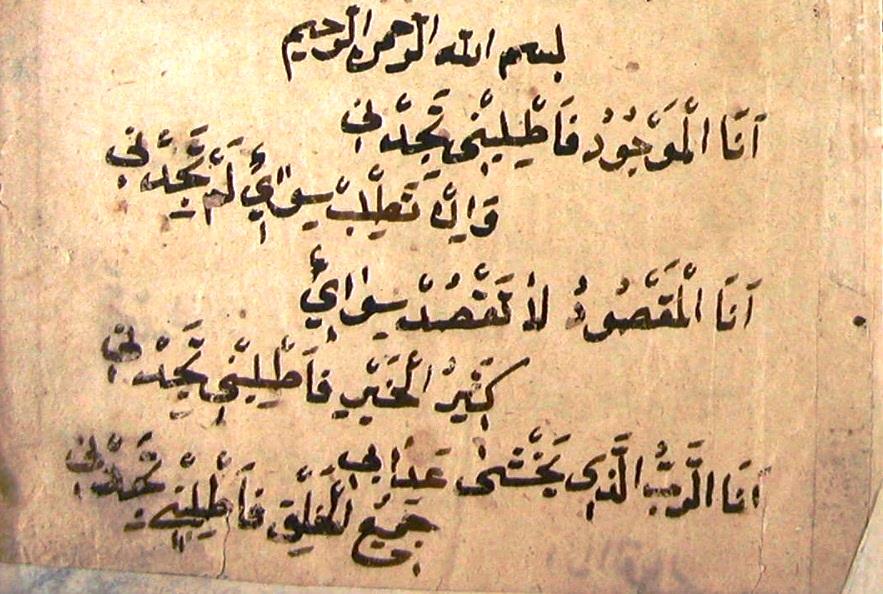 بسم الله الرحمن الرحيم
اَنَا الْمَوْجُودُ فَاَطْلِبْنِى تَجِدْنِى
وَاِنْ تَطْلُبْ سِوَائِ لَمْ تَجِدْنِى
اَنَا الْمَقْصُودُ لَا تَقْصُدْ سِوَائِ
كَثِيرُ الْخَيْرِ فَاَطْلِبْنِى تَجِدْنِى
اَنَا الرَّبُّ الَّذِى يَخْشٰى عَذَابِى
جَمِيعُ الْخَلْقِ فَاَطْلِبْنِى تَجِدْنِى